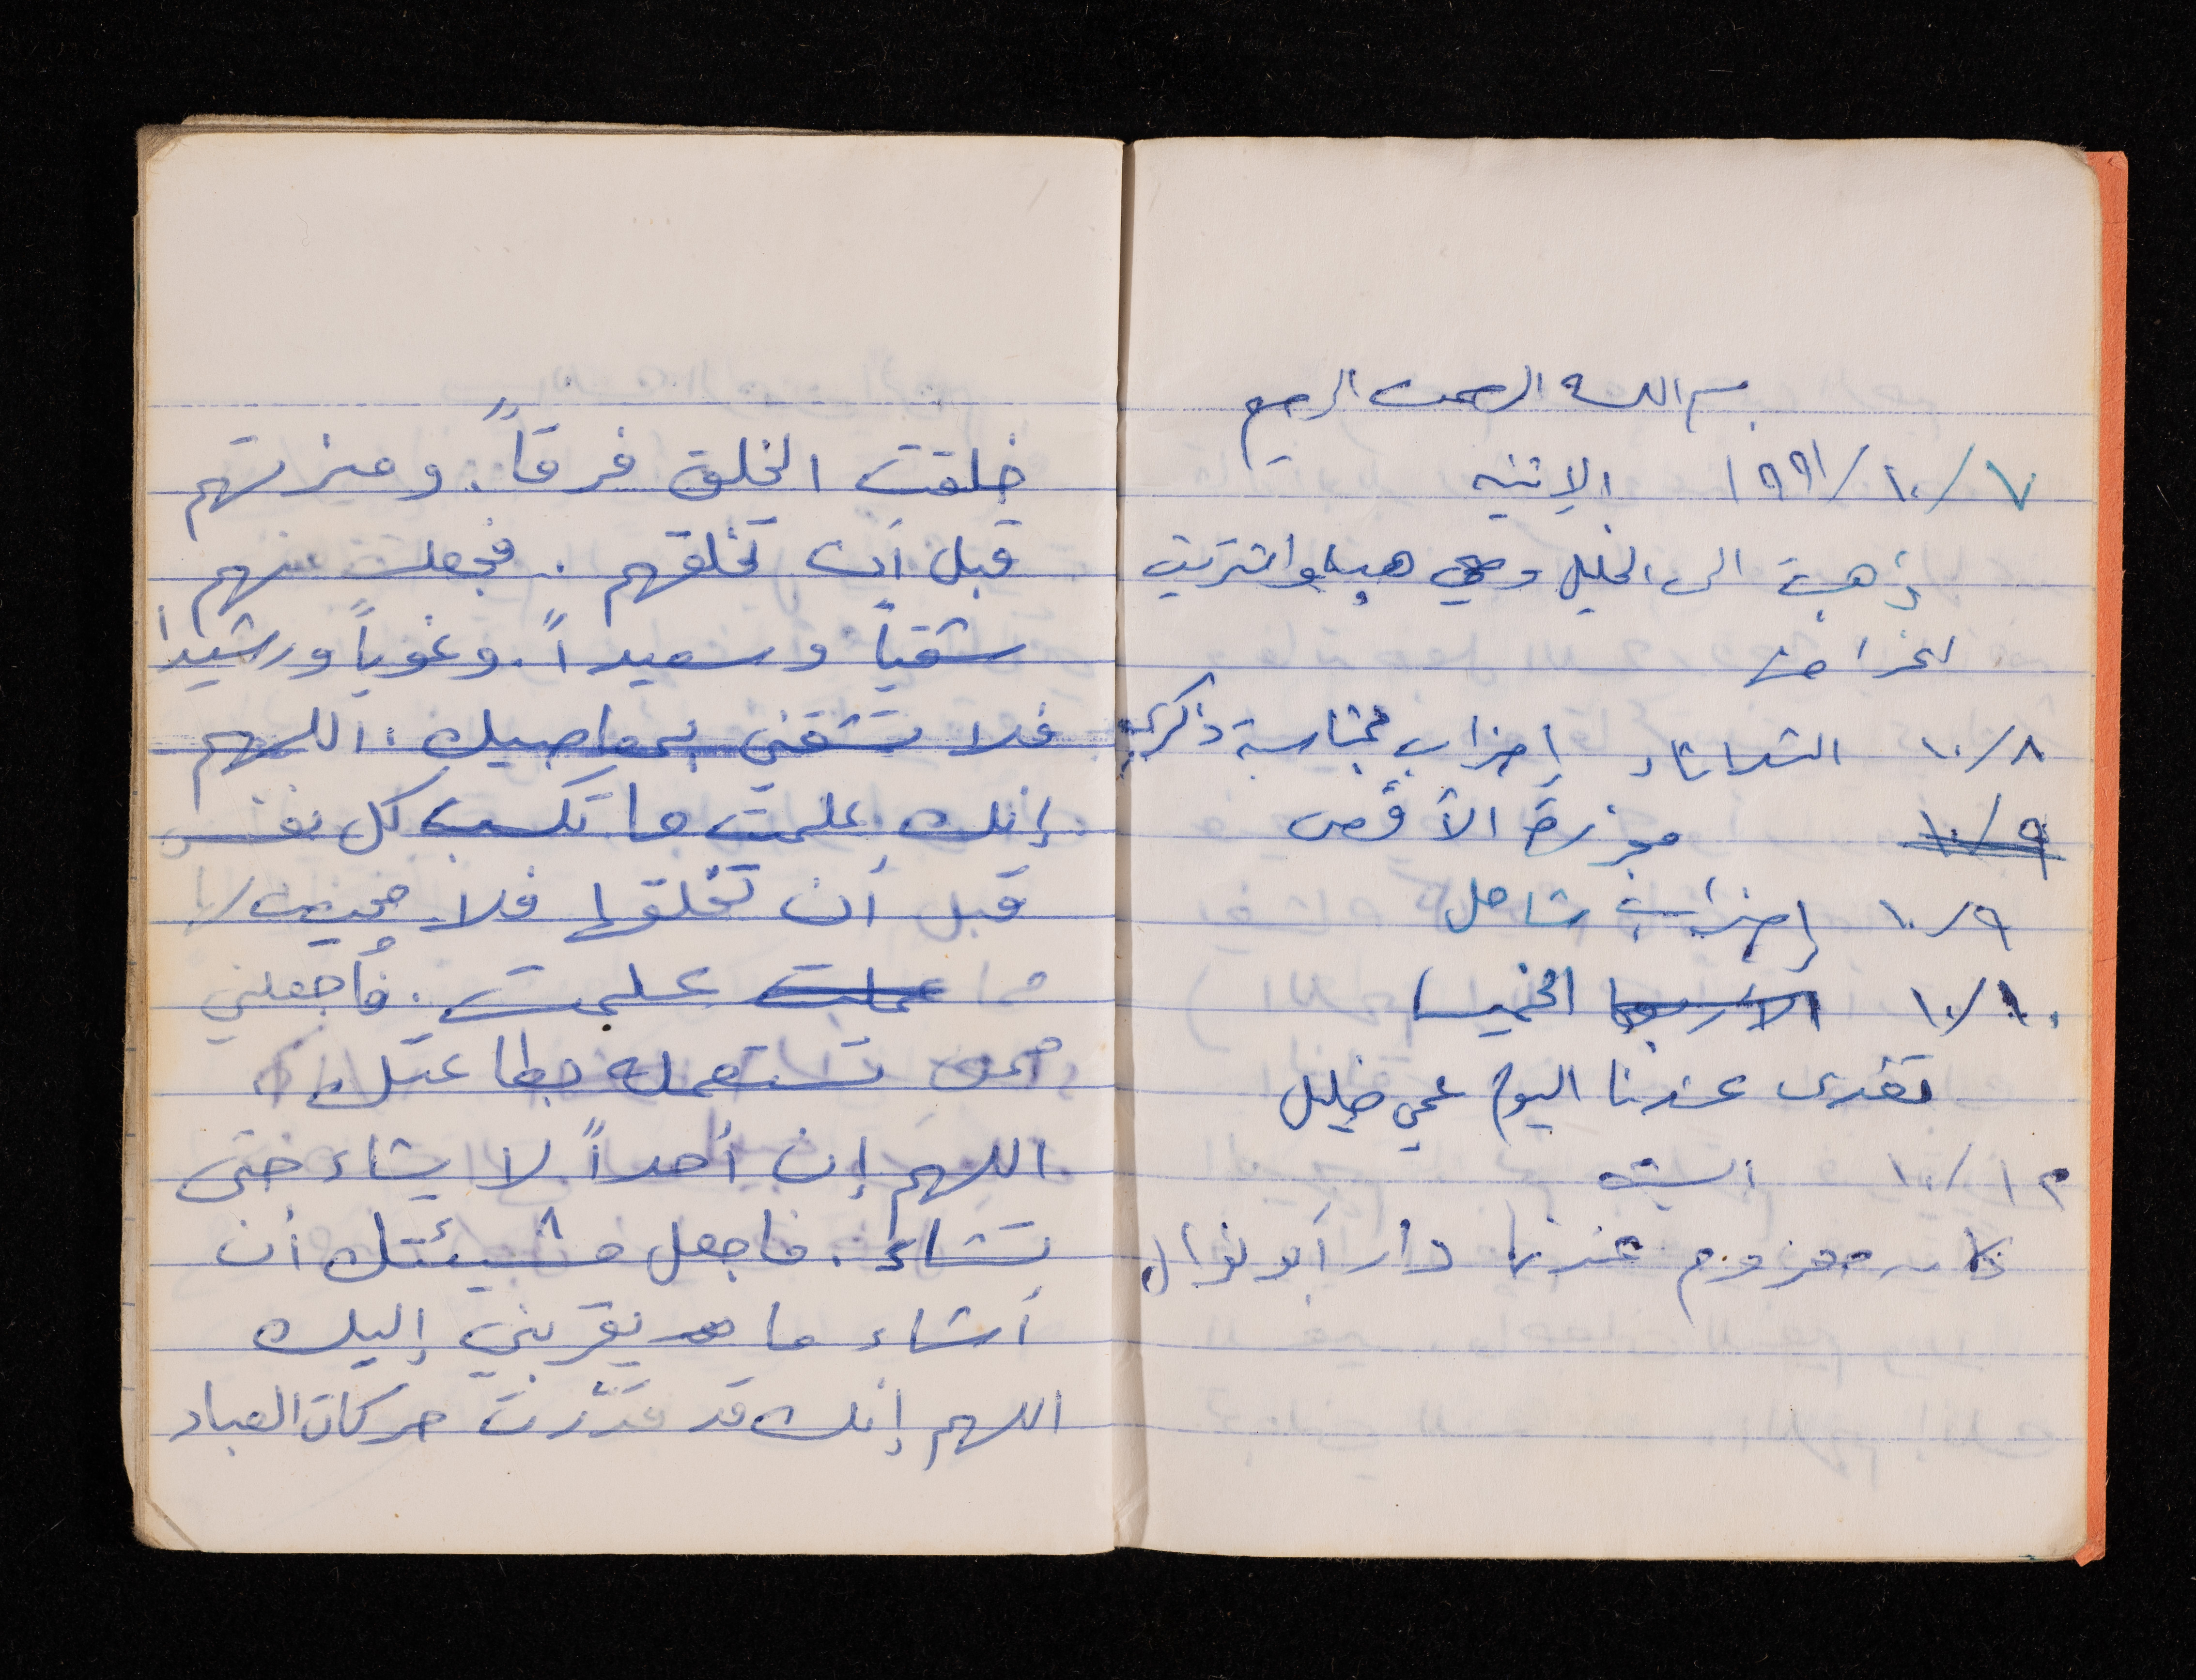 بسم الله الرحمن الرحيم
٧/١٠/١٩٩١ الإثنين
ذهبت الى الخليل ومعي هبه واشتريت
اغراض
١٠/٨ الثلاثاء إضراب بمناسبة ذكرى
١٠/٩ مجزرة الأقصى
١٠/٩ إضراب شامل
١٠/١٠ الأربعا الخميس
تغدى عندنا اليوم عمي خليل
١٠/١٢ السبت
كان معزوم عندنا دار أبو نوال
خلقت الخلق فرقاً. وميزتهم
قبل أن تخلقهم. فجعلت منهم
شقياً وسعيداً. وغوياً ورشيداً
فلا تشقني بمعاصيك. اللهم
إنك علمت ما تكسب كل نفس
قبل أن تخلقها فلا محيص لها
مما عملت علمت. فاجعلني
ممن تستعمله بطاعتك
اللهم إن أحداً لا يشاء حتى
تشاء. فاجعل مشيئتك أن
أشاء ما يقربني إليك
اللهم إنك قد قدّرت حركات العباد